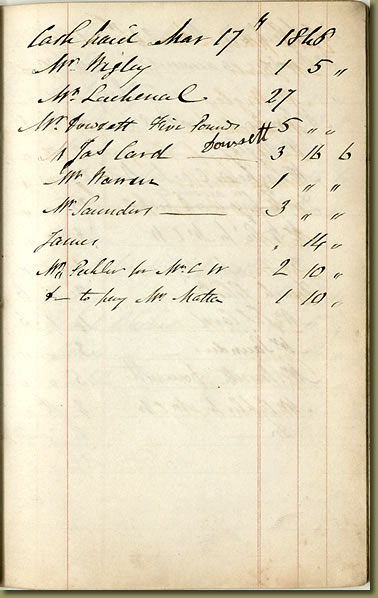 Cash paid Mar 17th 1848
Mr Wigley 1 5 "
Mr Lachenal 27
Mr Dowsett Five Pounds 5 " "
Dowsett
Jas Card — 3 16 6
Mr Warren 1 " "
Mr Saunders — 3 " "
James . 14 "
for Mr C W 2 10 "
to pay Mr 1 10 "